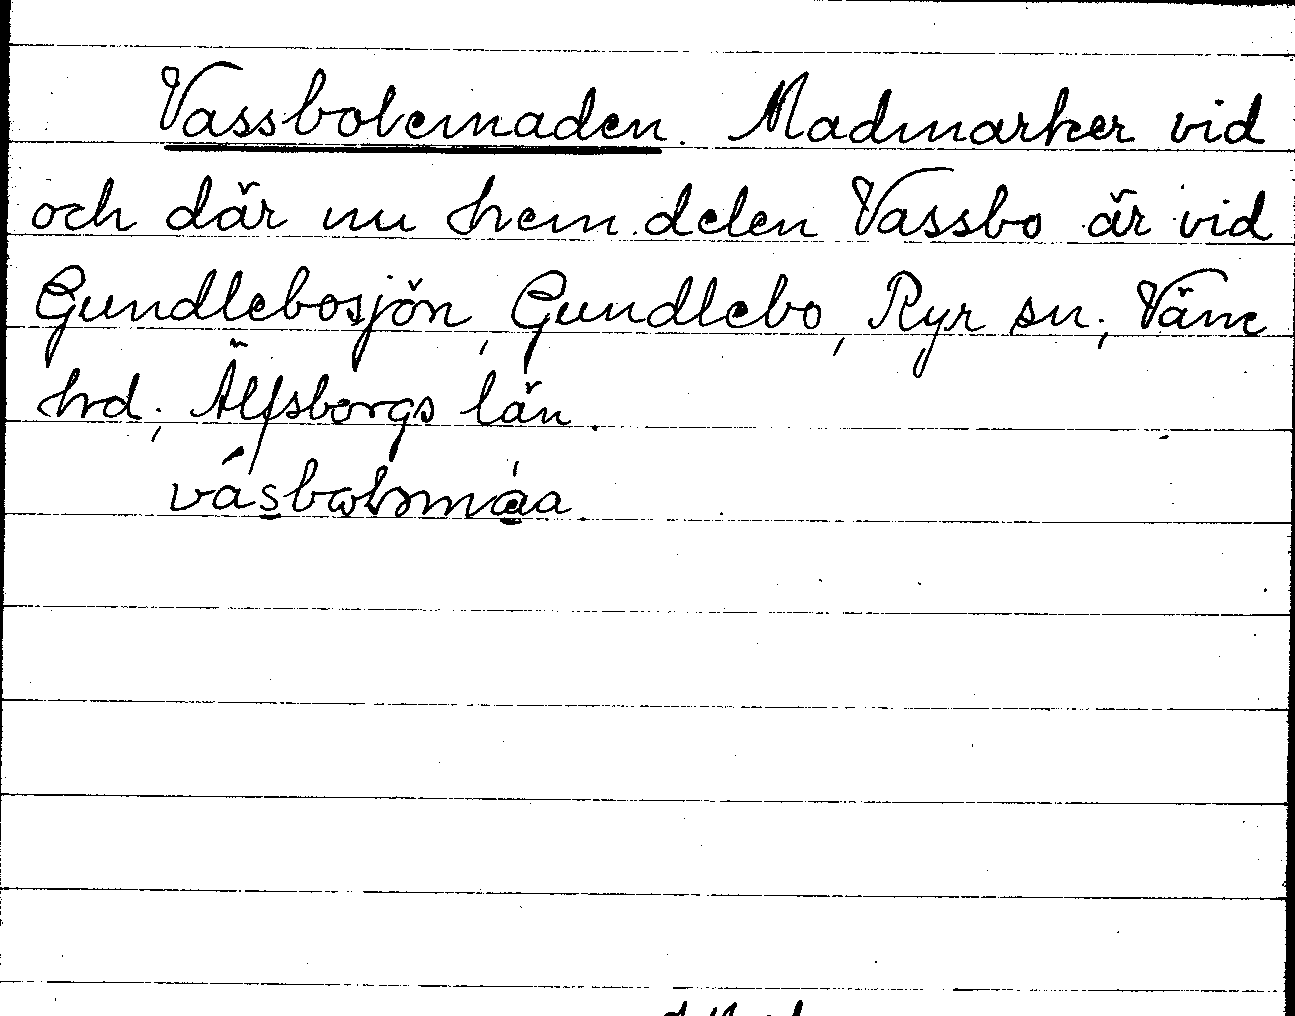 Vassbotemaden. Madmarker vid
och där nu hem.delen Vassbo är vid
Gundlebosjön, Gundlebo, Ryr sn., Väne
hrd., Älfsborgs län.